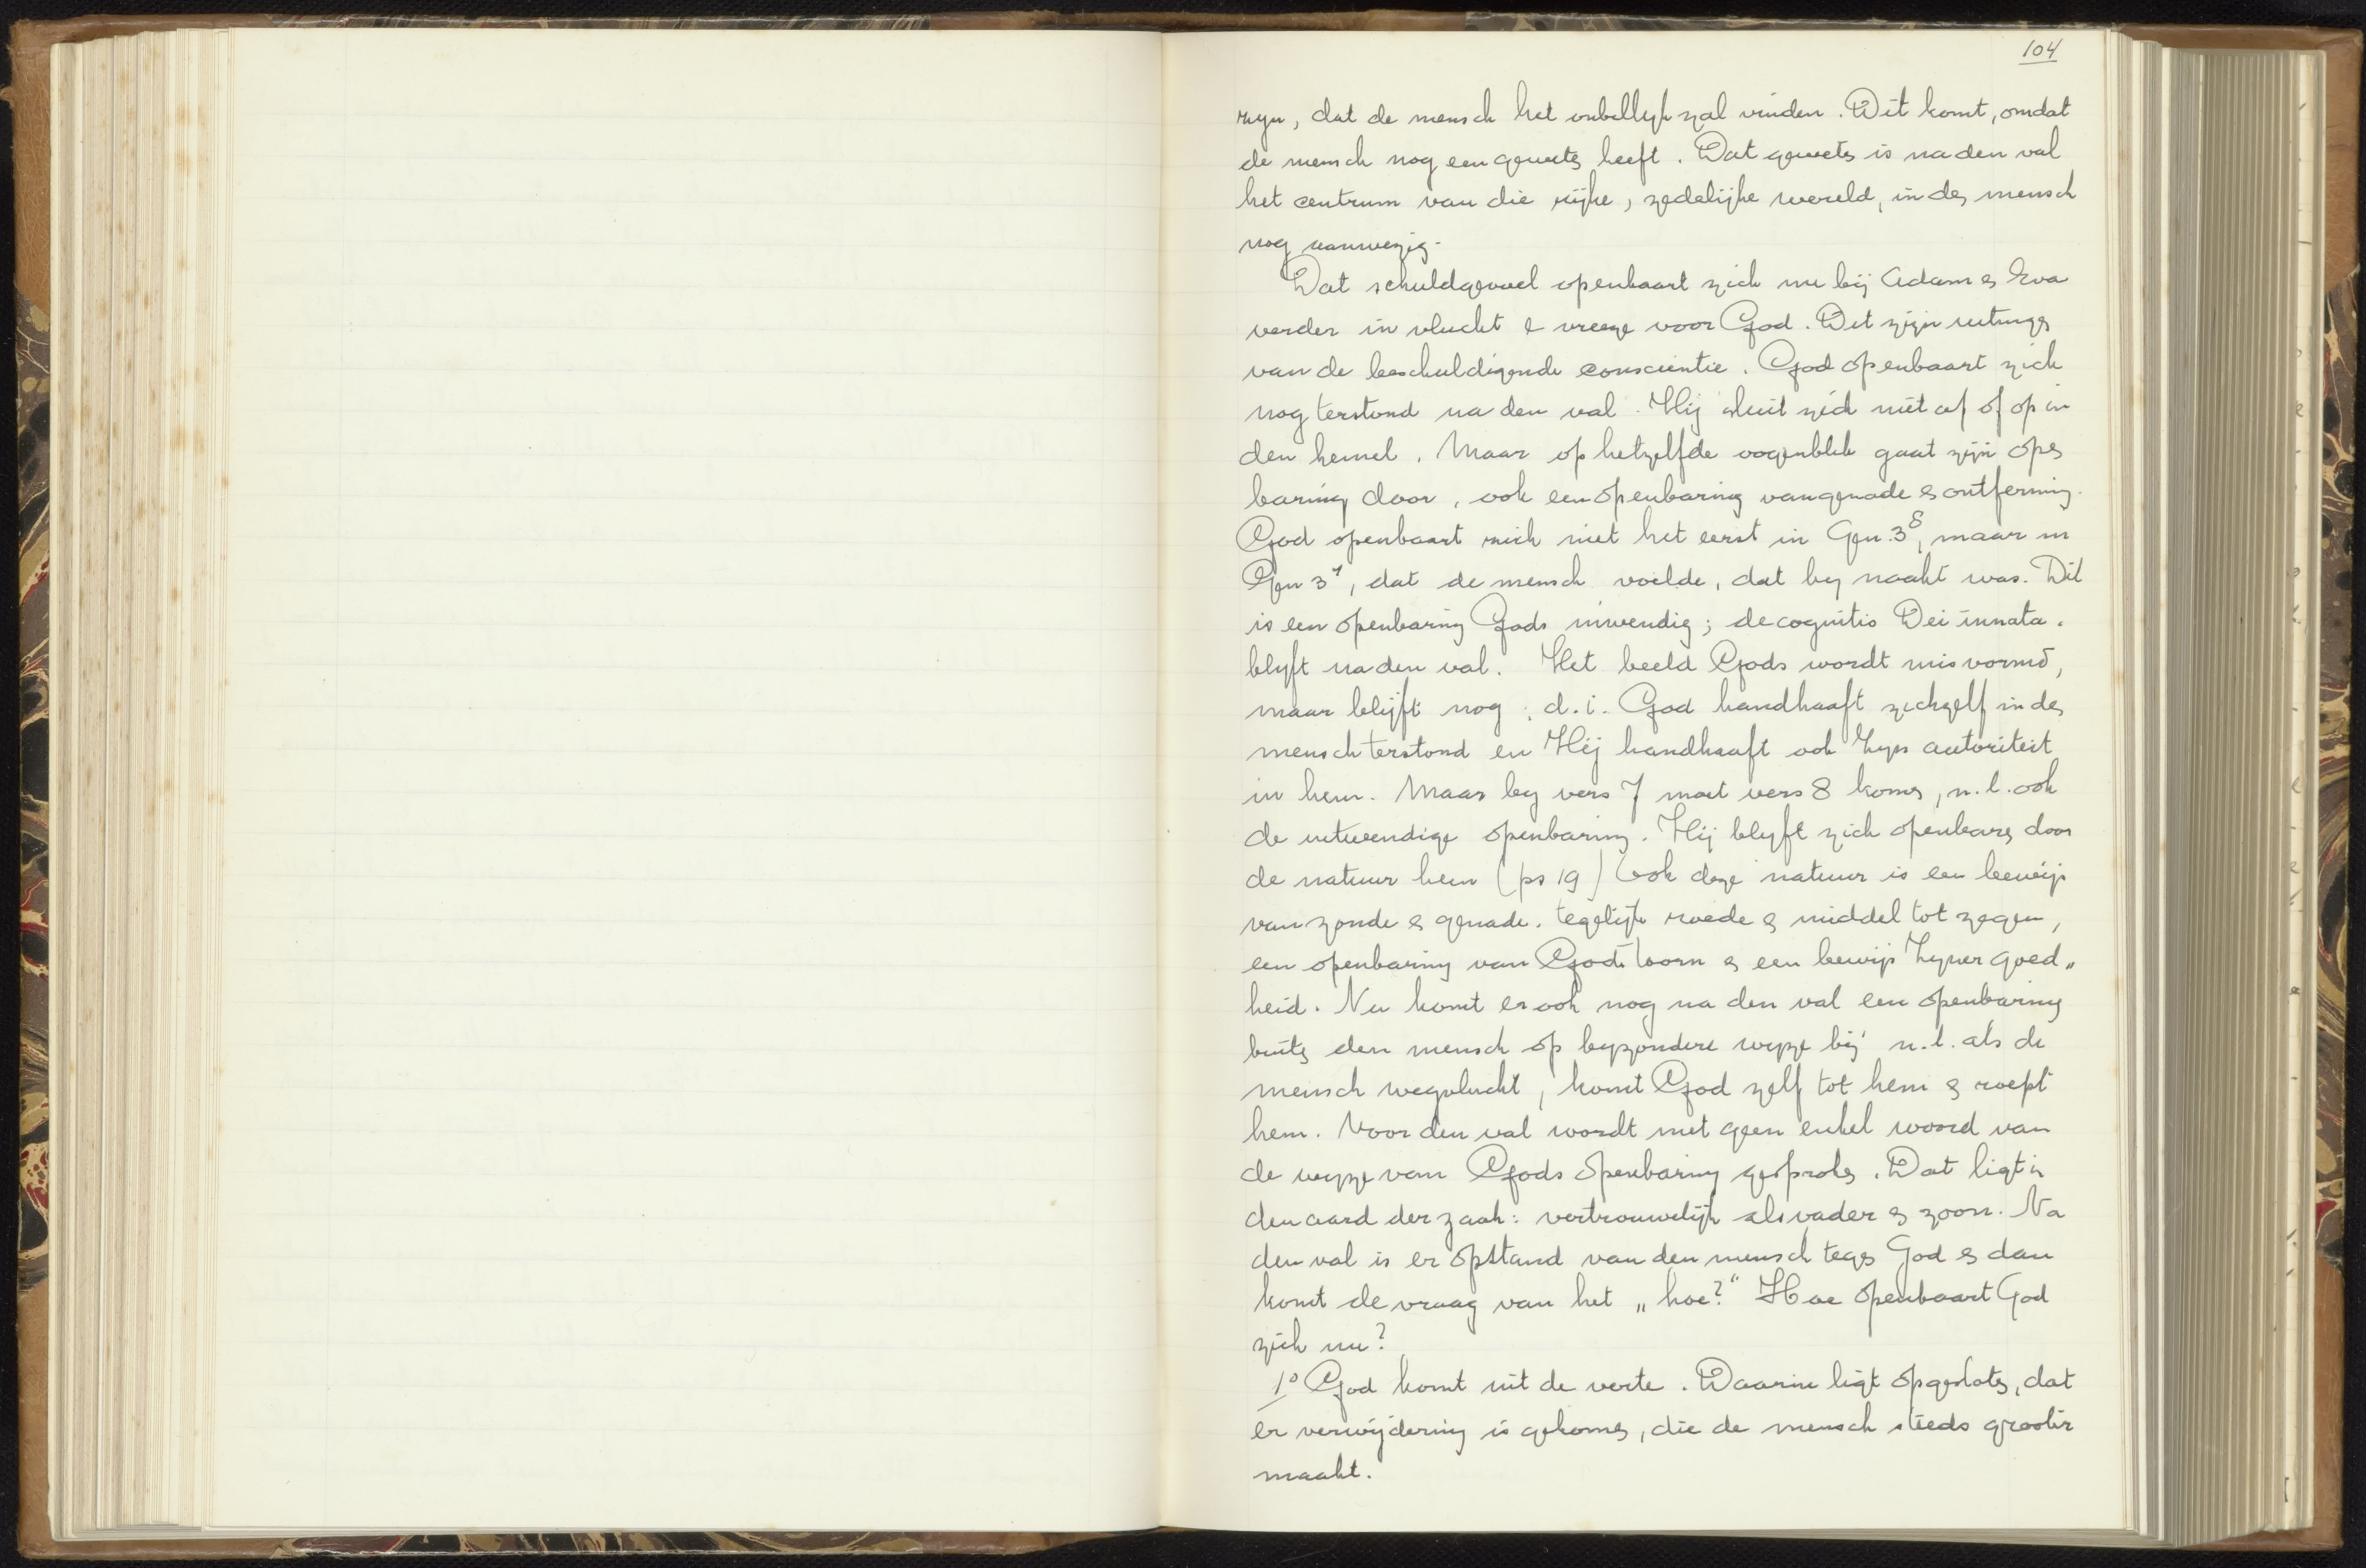 104
zyn, dat de mensch het onbillyk zal vinden. Dit komt, omdat
de mensch nog een geweten heeft. Dat geweten is na den val
het centrum van die rijke, zedelijke wereld, in den mensch
nog aanwezig.
Dat schuldgevoel openbaart zich nu bij Adam en Eva
verder in vlucht & vreeze voor God. Dit zijn uitingen
van de beschuldigende conscientie. God openbaart zich
nog terstond na den val. Hij sluit zich niet af of op in
den hemel. Maar op hetzelfde oogenblik gaat zijn open
baring door, ook een openbaring van genade en ontferming.
God openbaart zich niet het eerst in Gen. 3⁸, maar in
Gen 3⁷, dat de mensch voelde, dat hy naakt was. Dit
is een openbaring Gods inwendig; de cognitio Dei innata.
blyft na den val. Het beeld Gods wordt misvormd,
maar blijft nog; d.i. God handhaaft zichzelf in den
mensch terstond en Hij handhaaft ook Zyn autoriteit
in hem. Maar by vers 7 moet vers 8 komen, n.l. ook
de uitwendige openbaring. Hij blyft zich openbaren door
de natuur heen (ps 19) Ook deze natuur is een bewijs
van zonde en genade. tegelijk roede en middel tot zegen,
een openbaring van Gods toorn en een bewijs Zyner goed„
heid. Nu komt er ook nog na den val een openbaring
buiten den mensch op byzondere wyze bij n.l. als de
mensch wegvlucht, komt God zelf tot hem en roept
hem. Voor den val wordt met geen enkel woord van
de wyze van Gods openbaring gesproken. Dat ligt in
den aard der zaak: vertrouwelijk als vader en zoon. Na
den val is er opstand van den mensch tegen God en dan
komt de vraag van het „hoe?" Hoe openbaart God
zich nu?
1⁰ God komt uit de verte. Daarin ligt opgesloten, dat
er verwijdering is gekomen, die de mensch steeds grooter
maakt.